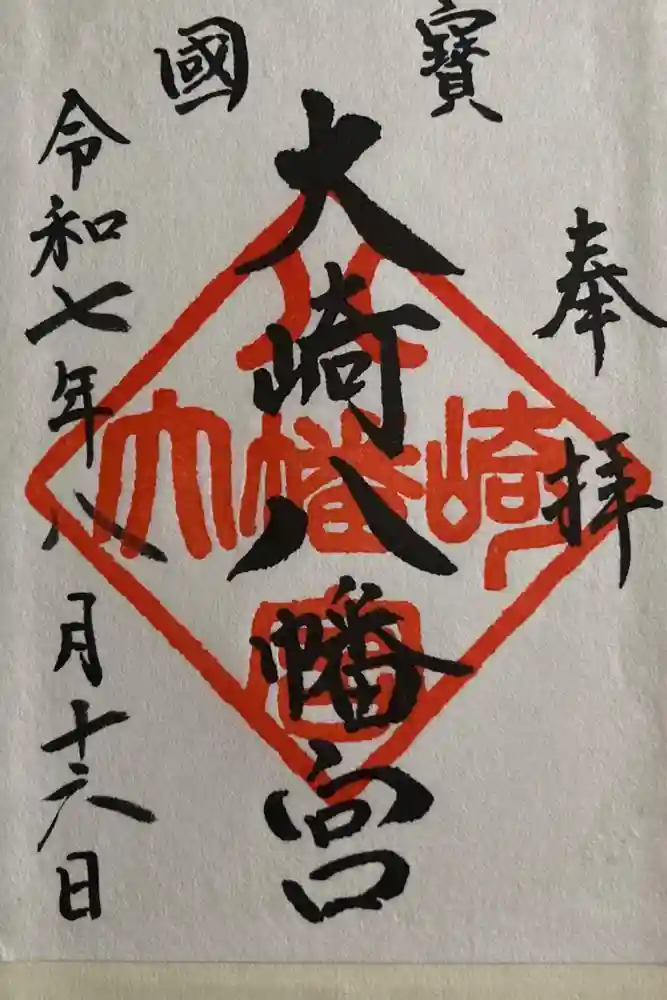 寶國
奉拝
大崎八幡宮
令和七年八月十六日
八
大幡崎